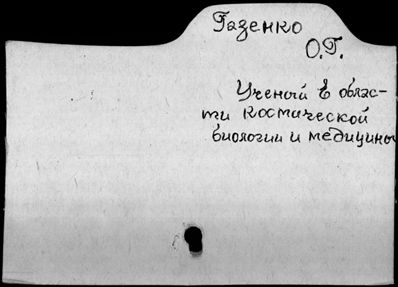 Газенко
О.Г.
Ученый в облас-
ти космической
биологии и медицины